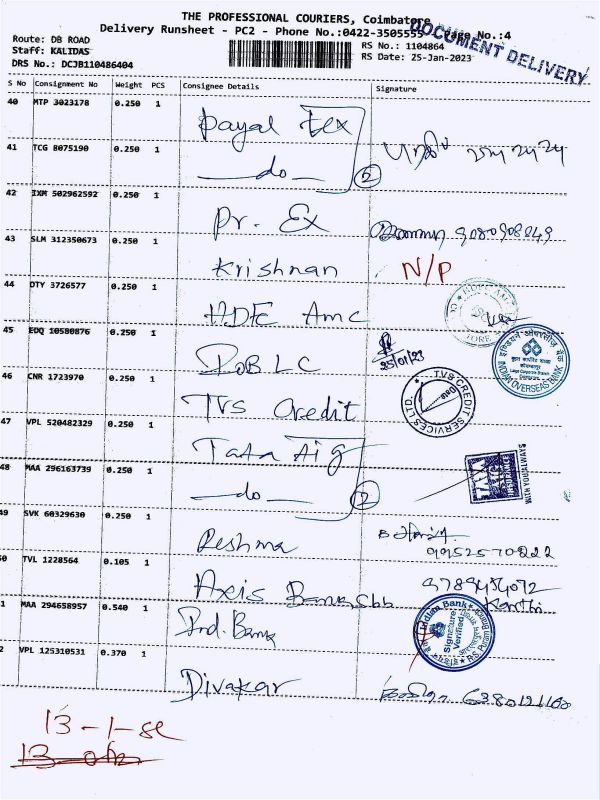 THE PROFESSIONAL COURIERS, Coimbatore
Delivery Runsheet - PC2 - Phone No.:0422-3505555 Page No.:4
DOCUMENT DELIVERY
Route: DB ROAD
Staff: KALIDAS
DRS No.: DCJB110486404
RS No.: 1104864
RS Date: 25-Jan-2023
S No Consignment No Weight PCS Consignee Details Signature
40 MTP 3023178 0.250 1 Payal Tex
41 TCG 8075190 0.250 1 — do — 2
42 IXM 502962592 0.250 1 Pr. Ex 9080908049
43 SLM 312350673 0.250 1 Krishnan N/P
44 DTY 3726577 0.250 1 HDFC Amc
45 EDQ 10580876 0.250 1 IOB LC 25/01/23
इण्डियन ओवरसीज़ बैंक
INDIAN OVERSEAS BANK
46 CNR 1723970 0.250 1 TVS Credit
TVS CREDIT SERVICES LTD.
47 VPL 520482329 0.250 1 Tata Aig
48 MAA 296163739 0.250 1 — do — 2
49 SVK 60329630 0.250 1 Reshma
9952570222
0 TVL 1228564 0.105 1 Axis Bank, Sbb 9789454072
1 MAA 294658957 0.540 1 Ind. Bank
Indian Bank
Signature Verified
R.S. Puram Branch
2 VPL 125310531 0.370 1 Divakar 6380121160
13-1-